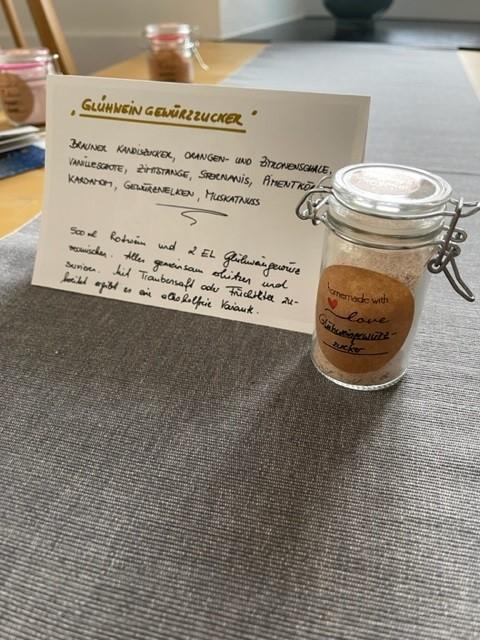 "GLÜHWEINGEWÜRZZUCKER"
BRAUNER KANDISZUCKER, ORANGEN- UND ZITRONENSCHALE,
VANILLESCHOTE, ZIMTSTANGE, STERNANIS, PIMENTKÖ
KARDAMOM, GEWÜRZNELKEN, MUSKATNUSS
500 ml Rotwein und 2 EL Glühweingewürz
vermischen. Alles gemeinsam erhitzen und
servieren. Mit Traubensaft oder Früchtetee zu-
bereitet ergibt es ein alkoholfreie Variante.
homemade with
love
Glühweingewürz-
zucker